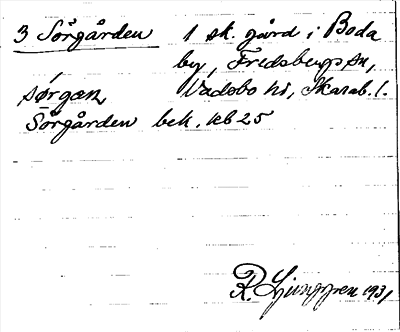 3 Sörgården 1 sk. gård i Boda
by, Fredsbergs sn,
sørgan, Vadsbo hd, Skarab. l.
Sörgården bek. kb 25
R. Ljunggren 1931